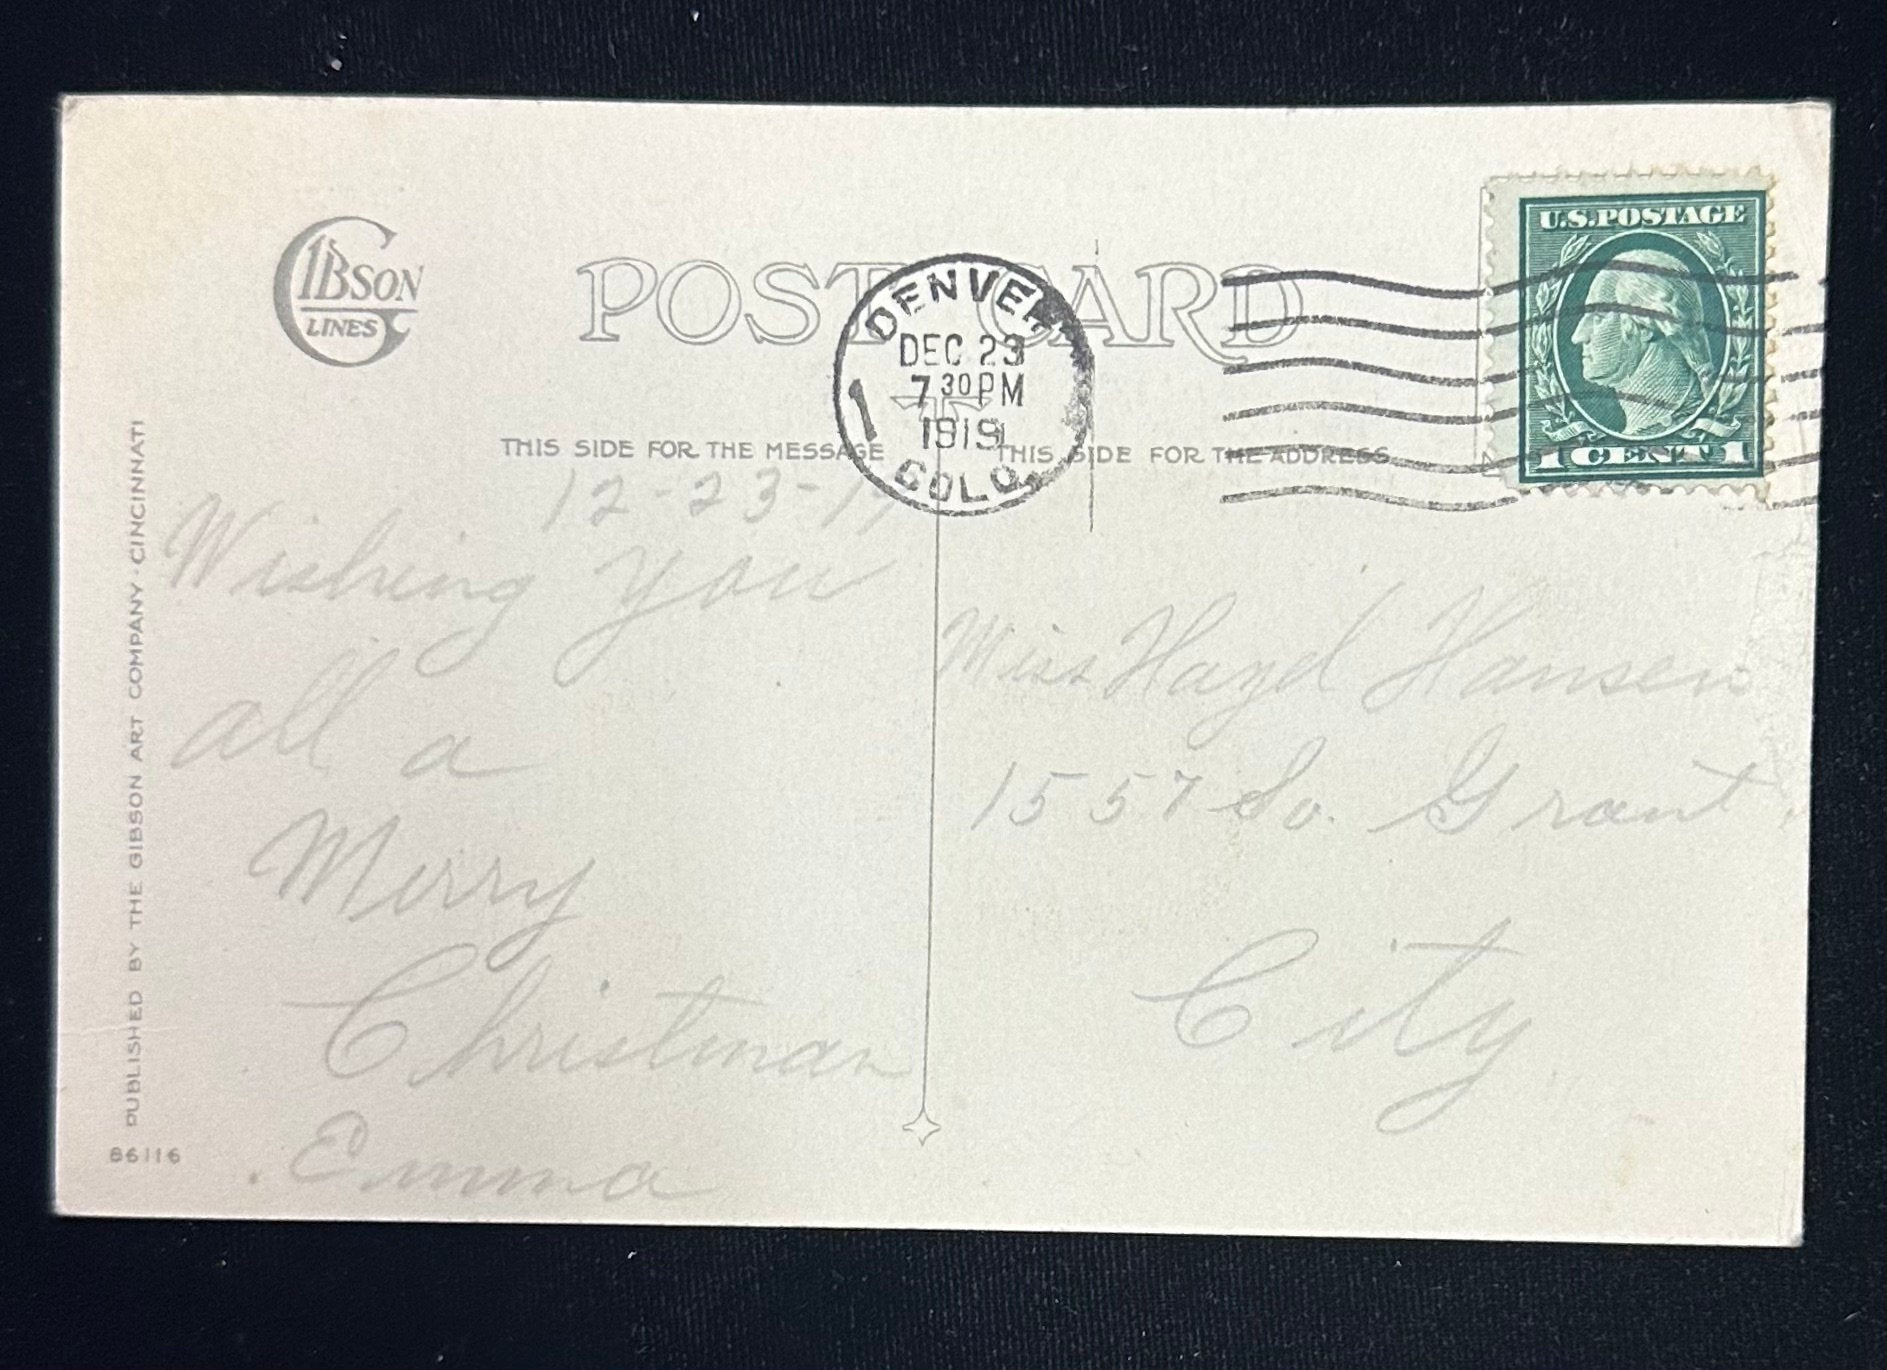 GIBSON
LINES
POST CARD
U.S. POSTAGE
1 CENT 1
DENVER
DEC 23
7 30 PM
1919
1
COLO.
THIS SIDE FOR THE MESSAGE
THIS SIDE FOR THE ADDRESS
12-23-19
Wishing you
all a
Merry
Christmas
Emma
Miss Hazel Hansen
1557 So. Grant.
City
PUBLISHED BY THE GIBSON ART COMPANY · CINCINNATI
86116